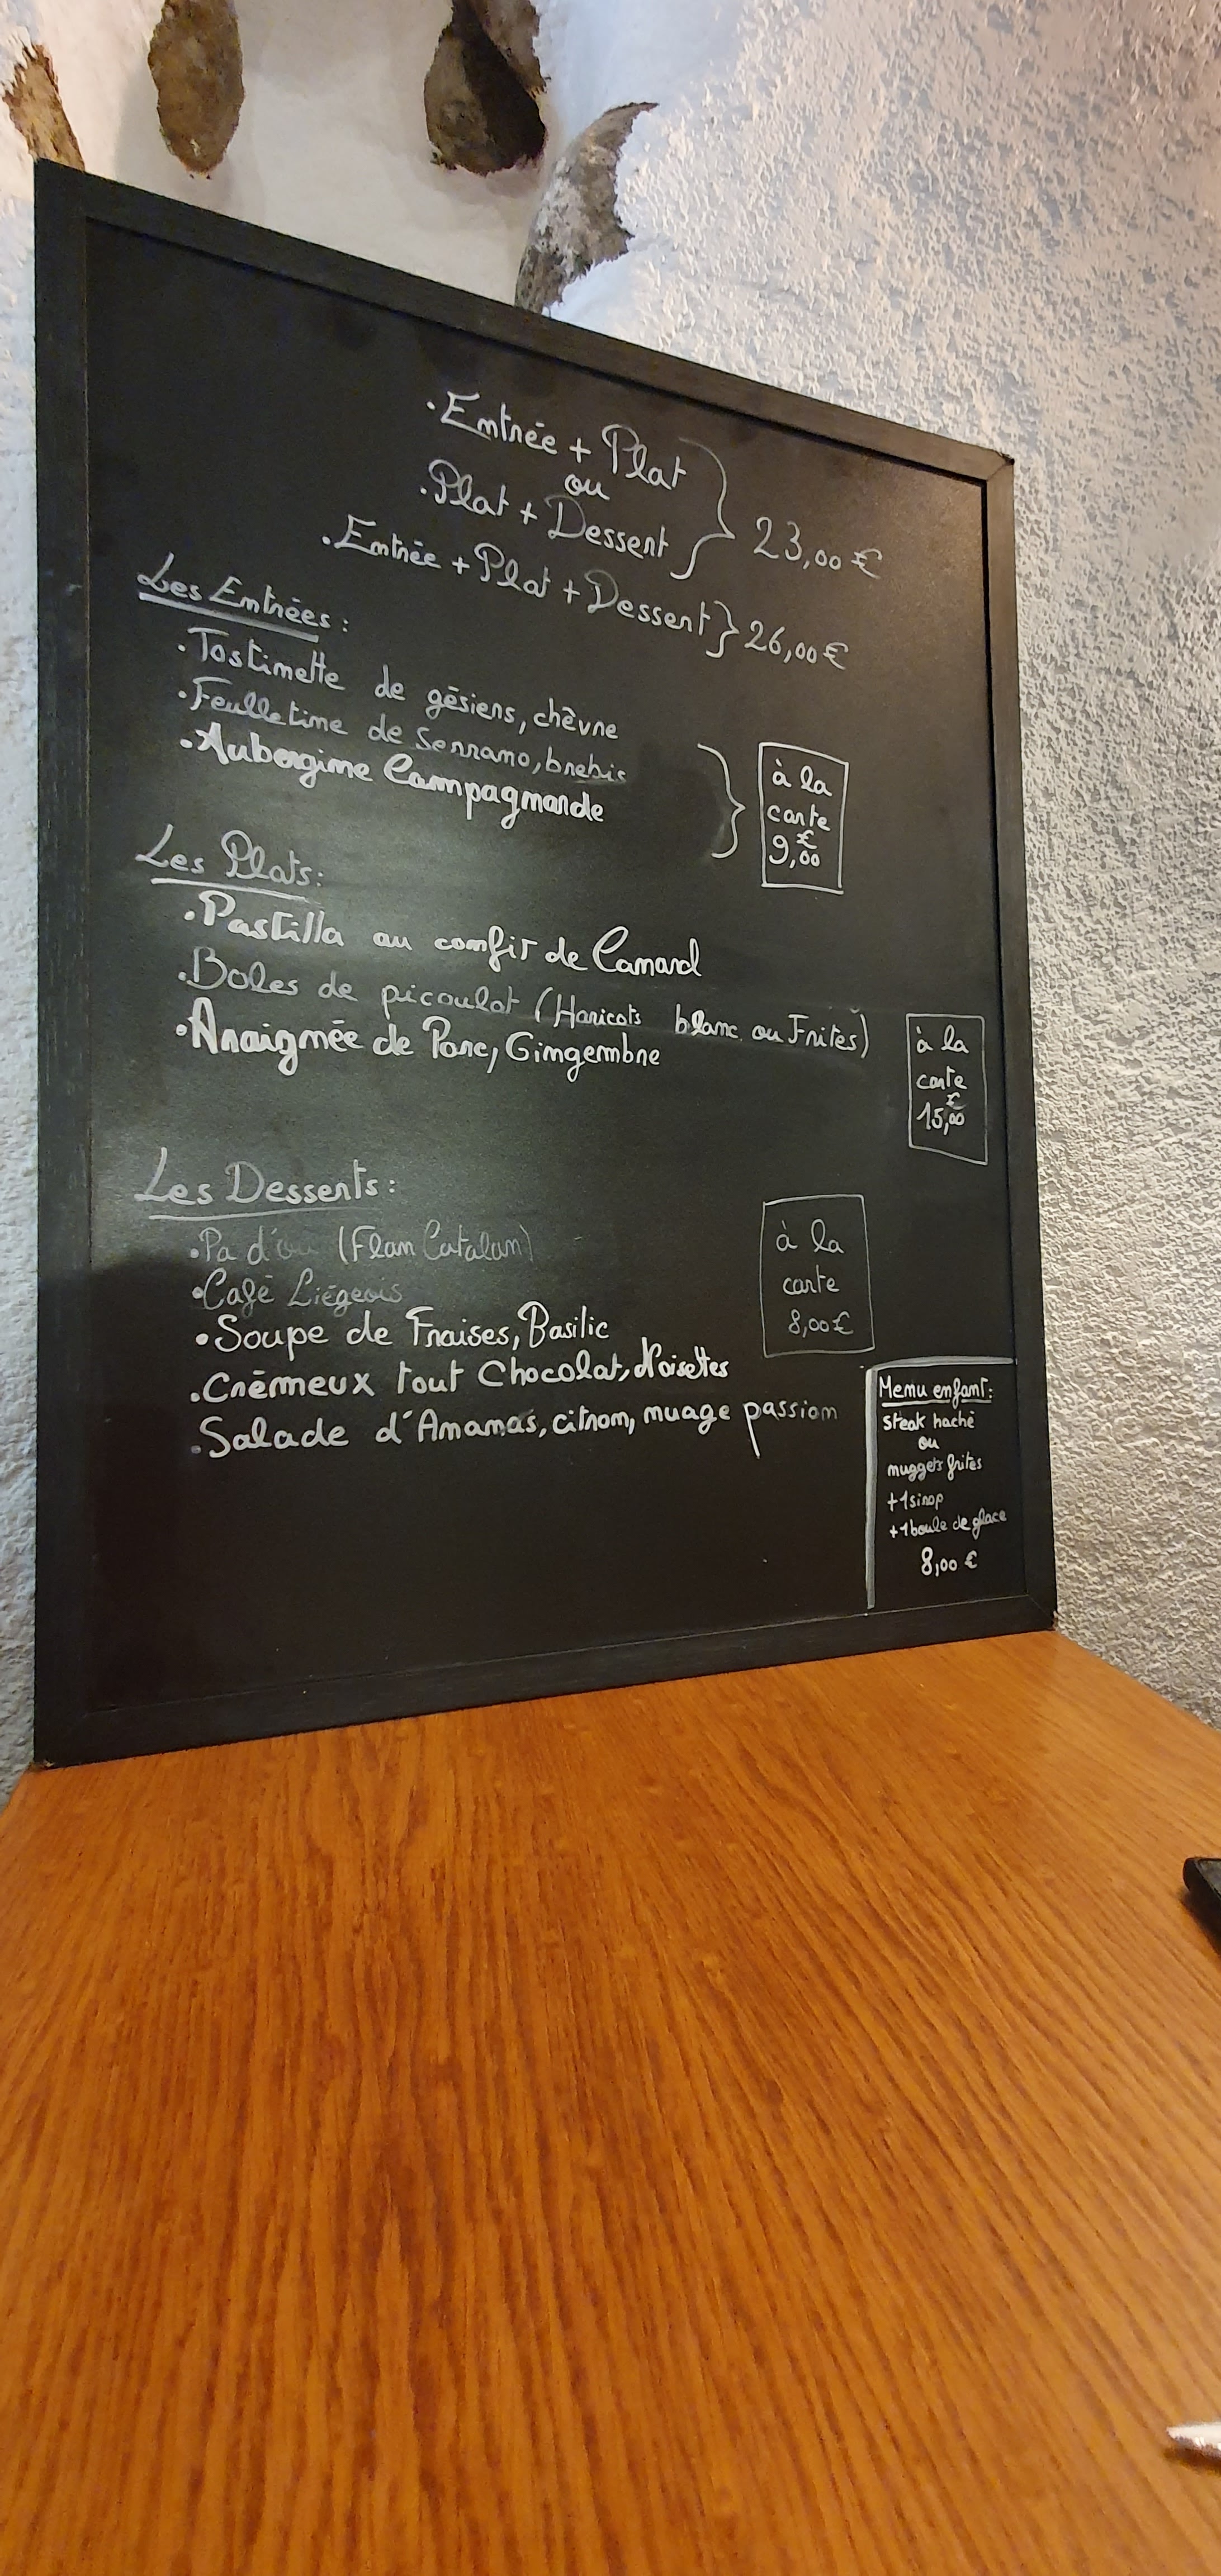 .Entrée + Plat
ou
.Plat + Dessert
23,00 €
.Entrée + Plat + Dessert
26,00 €
Les Entrées :
.Tostinette de gésiers, chèvre
.Feulletine de Serrano, brebis
.Aubergine Campagnarde
à la
carte
9,00 €
Les Plats:
.Pastilla au confit de Canard
.Boles de picoulat (Haricots blanc ou Frites)
.Araignée de Porc, Gingembre
à la
carte
15,00 €
Les Desserts :
.Pa d'ou (Flan Catalan)
.Café Liégeois
.Soupe de Fraises, Basilic
.Crémeux tout Chocolat, Noisettes
.Salade d'Ananas, citron, nuage passion
à la
carte
8,00 €
Menu enfant:
Steak haché
ou
nuggets frites
+1 sirop
+1 boule de glace
8,00 €